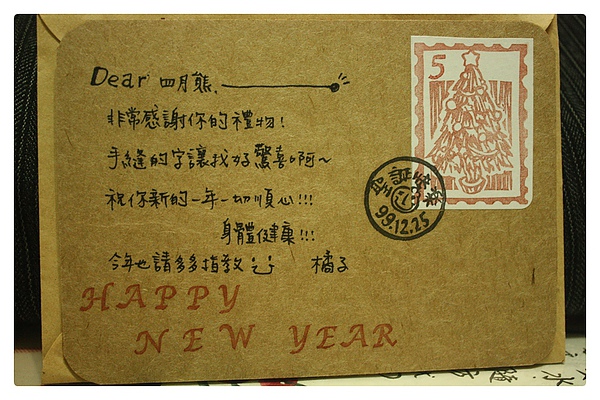 Dear 四月熊、
非常感謝你的禮物!
手縫的字讓我好驚喜啊~
祝你新的一年一切順心!!!
身體健康!!!
今年也請多多指教 橘子
HAPPY
NEW YEAR
5
聖誕快樂
99.12.25